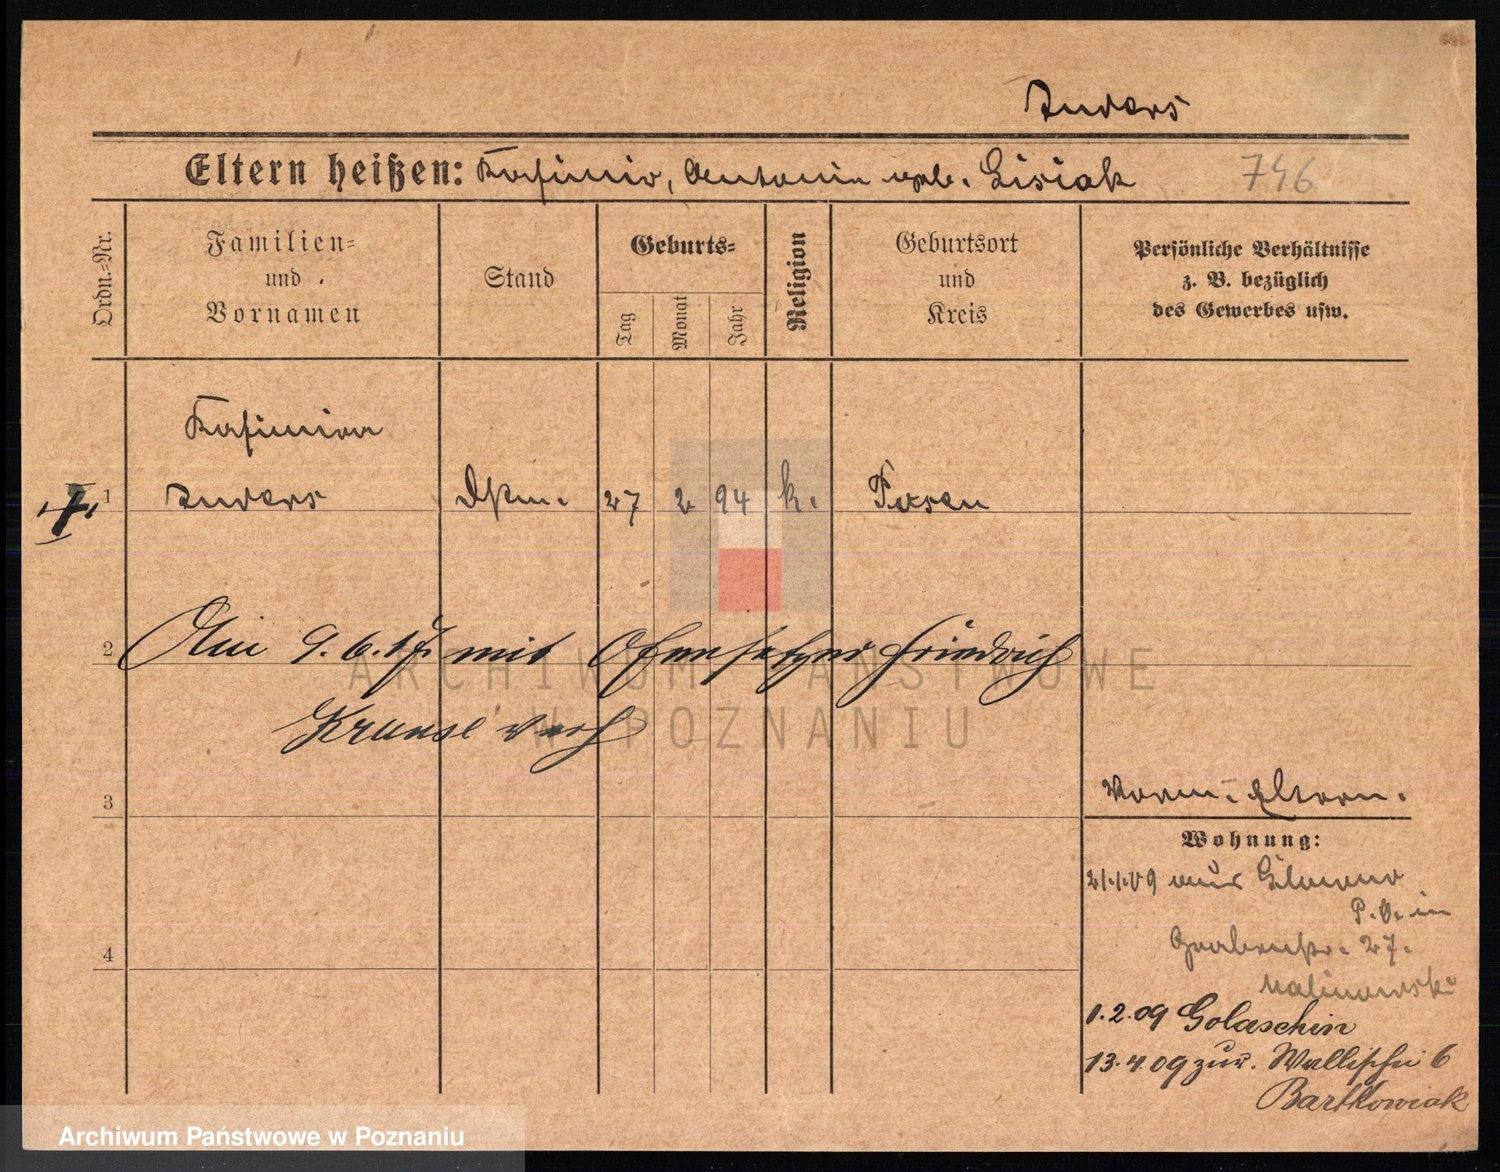 Anders
Eltern heißen: Kasimir, Antonin geb. Lisiak 746
Ordn.-Nr.
Familien- und Vornamen
Stand
Geburts-
Tag
Monat
Jahr
Religion
Geburtsort und Kreis
Persönliche Verhältnisse
z. B. bezüglich
des Gewerbes usw.
Kasimira
1 Anders 27 2 94 k. Posen
2 Am 9.6.17. mit Ofensetzer Friedrich
Krause verh
3
Eltern.
Wohnung:
21.1.09 aus
P. O. in
Grabenstr. 27.
Malinowski
1.2.09 Golaschin
13.4.09 zur. Wallischei 6
Bartkowiak
4
ARCHIWUM PAŃSTWOWE
W POZNANIU
Archiwum Państwowe w Poznaniu